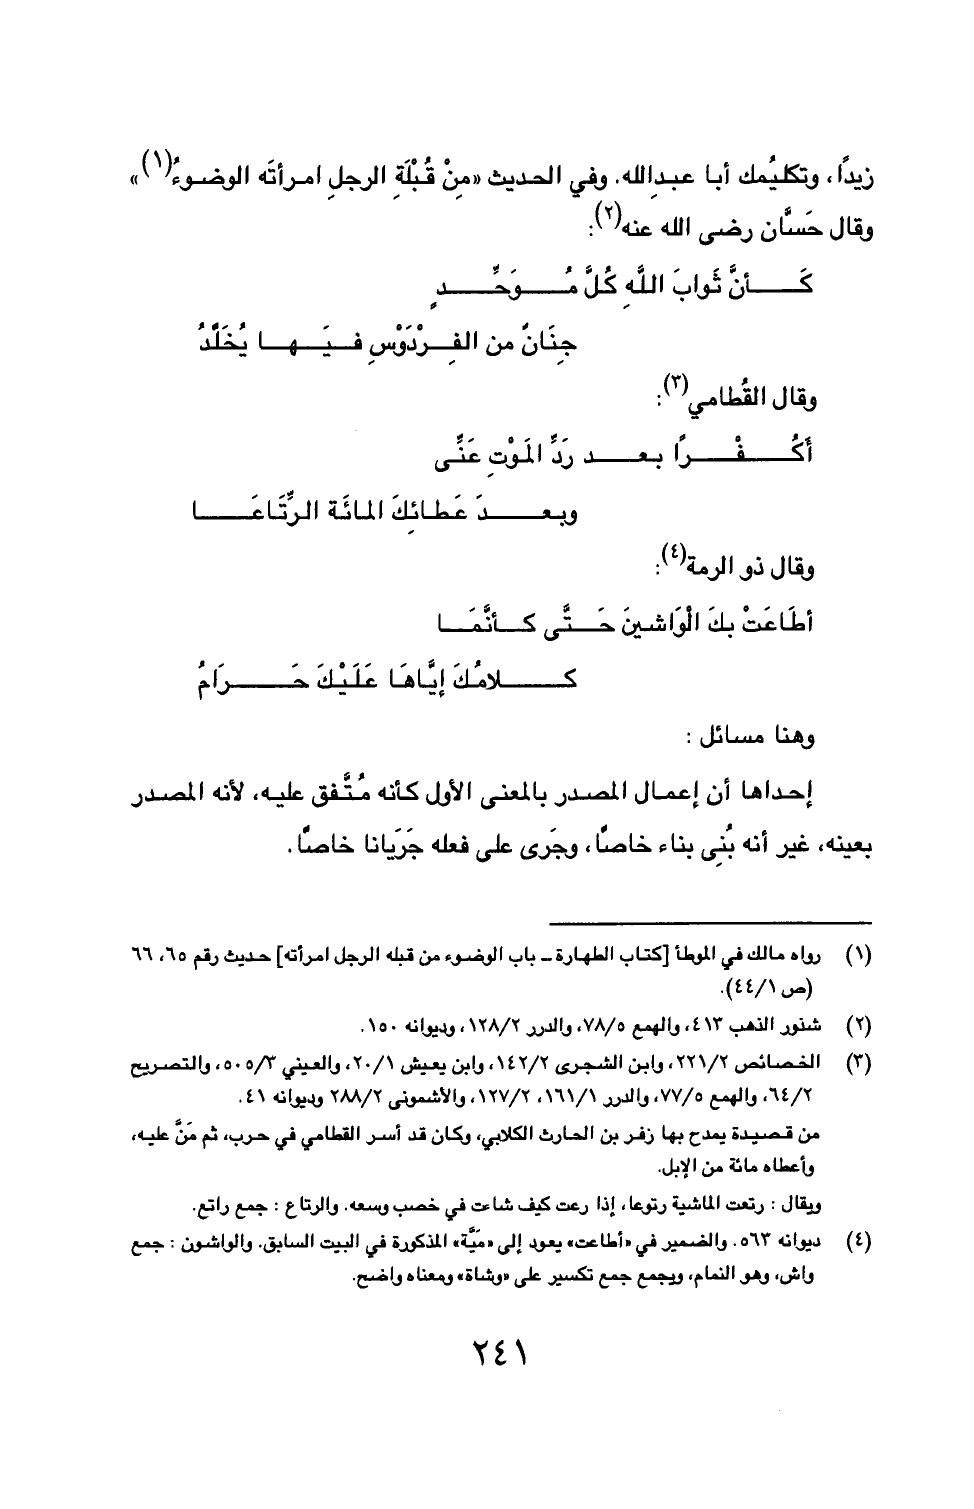 زيدًا، وتكليُمك أبا عبدِالله. وفي الحديث «مِنْ قُبْلَةِ الرجلِ امرأتَه الوضوءُ(١)»
وقال حَسَّان رضى الله عنه(٢):
كَـــــأنَّ ثَوابَ اللَّهِ كُلَّ مُـــــوَحِّـــــدٍ
جِنَانٌ من الفِــرْدَوْسِ فــيَــهــا يُخَلَّدُ
وقال القُطامي(٣):
أكُـــــفْـــــرًا بعـــــد رَدِّ المَوْتِ عَنِّى
وبعـــــدَ عَطائِكَ المائَة الرِّتَاعَـــــا
وقال ذو الرمة(٤):
أطَاعَتْ بكَ الْوَاشينَ حَـــتَّى كـــأنَّمَـــا
كـــــلامُكَ إيَّاهَا عَلَيْكَ حَـــــرَامُ
وهنا مسائل :
إحداها أن إعمال المصدر بالمعنى الأول كأنه مُتَّفق عليه، لأنه المصدر
بعينه، غير أنه بُنِى بناء خاصًّا، وجَرى على فعله جَرَيانا خاصًّا.
(١) رواه مالك في الموطأ [كتاب الطهارة ــ باب الوضوء من قبله الرجل امرأته] حديث رقم ٦٥، ٦٦
(ص ٤٤/١).
(٢) شذور الذهب ٤١٣، والهمع ٧٨/٥، والدرر ١٢٨/٢، وديوانه ١٥٠.
(٣) الخصائص ٢٢١/٢، وابن الشجرى ١٤٢/٢، وابن يعيش ٢٠/١، والعيني ٥٠٥/٣، والتصريح
٦٤/٢، والهمع ٧٧/٥، والدرر ١٦١/١، ١٢٧/٢، والأشمونى ٢٨٨/٢ وديوانه ٤١.
من قصيدة يمدح بها زفر بن الحارث الكلابي، وكان قد أسر القطامي في حرب، ثم مَنَّ عليه،
وأعطاه مائة من الإبل.
ويقال : رتعت الماشية رتوعا، إذا رعت كيف شاءت في خصب وسعه. والرتاع : جمع راتع.
(٤) ديوانه ٥٦٣. والضمير في «أطاعت» يعود إلى «مَيَّة» المذكورة في البيت السابق. والواشون : جمع
واش، وهو النمام، ويجمع جمع تكسير على «وشاة» ومعناه واضح.
٢٤١